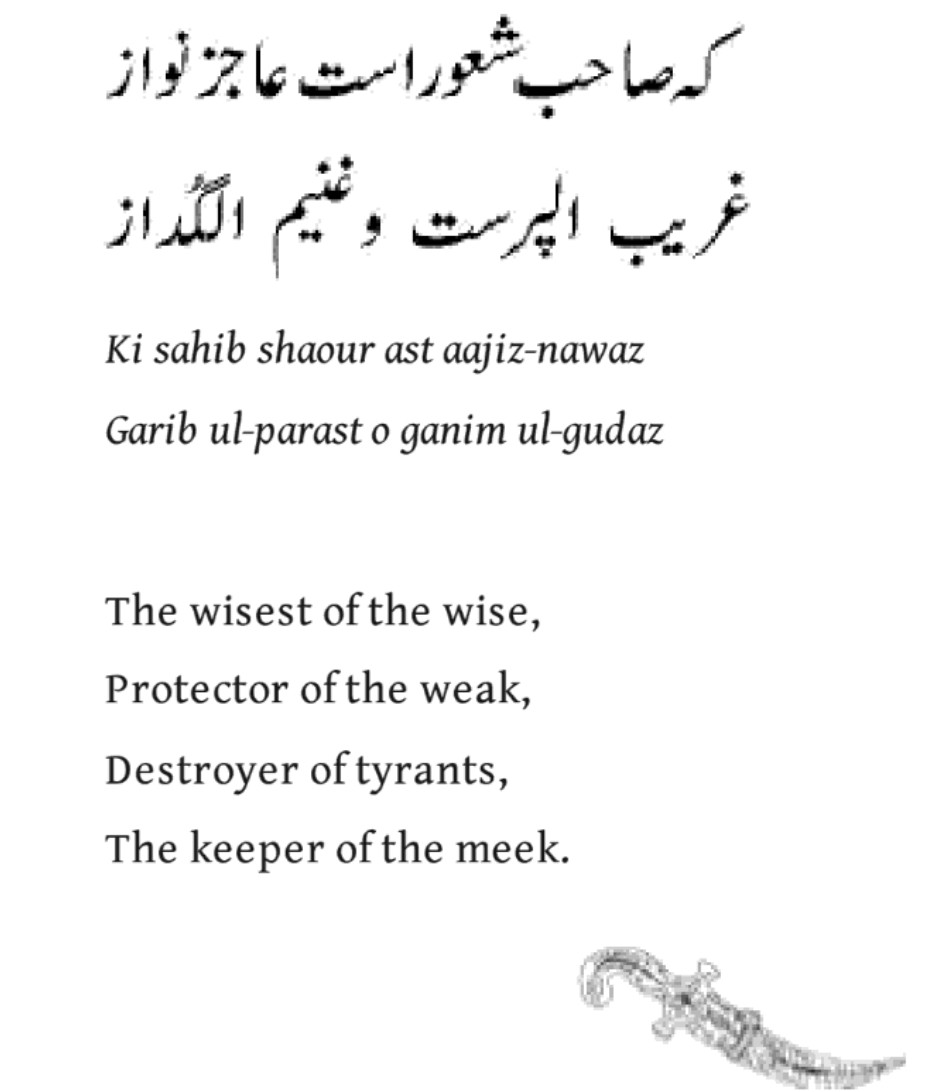 که صاحب شعور است عاجز نواز
غریب الپرست و غنیم الگُداز
Ki sahib shaour ast aajiz-nawaz
Garib ul-parast o ganim ul-gudaz
The wisest of the wise,
Protector of the weak,
Destroyer of tyrants,
The keeper of the meek.